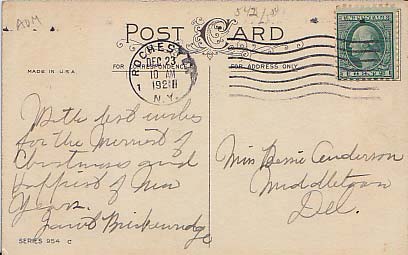 ADM
542/54
POST CARD
MADE IN U.S.A.
FOR CORRESPONDENCE
FOR ADDRESS ONLY
ROCHESTER
DEC 23
10 AM
1921
N.Y.
1
U.S. POSTAGE
With best wishes
for the Merriest of
Christmas and
happiest of New
Years.
Janet Brickenridge
Miss Bessie Anderson
Middletown
Del.
SERIES 954 C